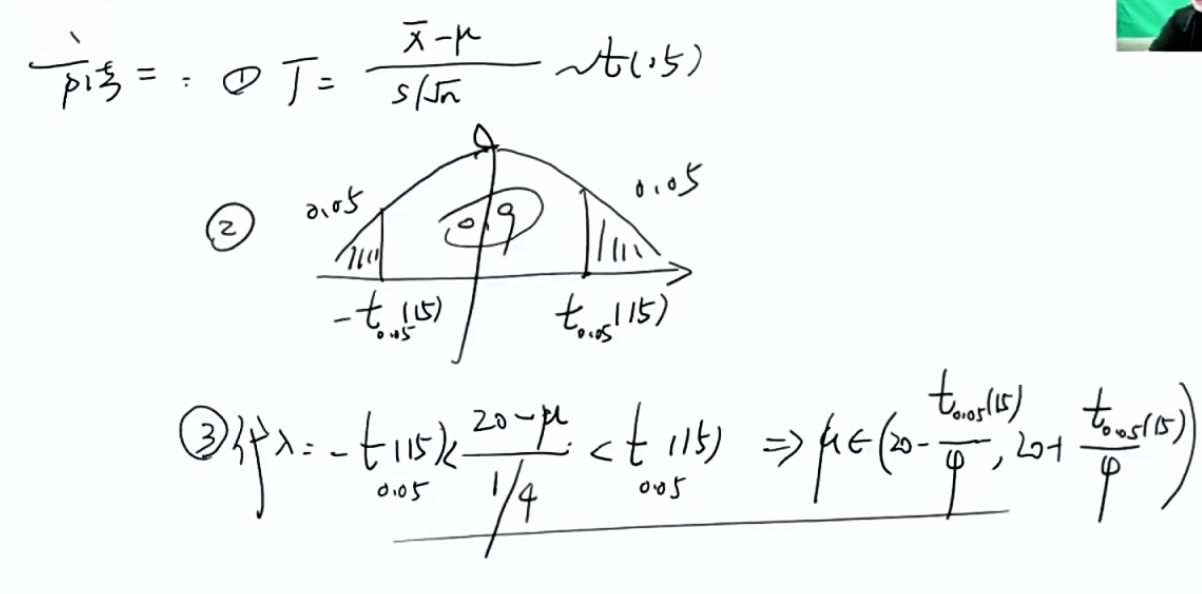 ① T = x̄-μ / s/√n ~ t(15)
0.05 0.9 0.05
②
-t0.05(15) t0.05(15)
③ 代入: -t0.05(15) < 20-μ / 1/4 < t0.05(15) ⇒ μ∈(20 - t0.05(15)/4, 20+ t0.05(15)/4)